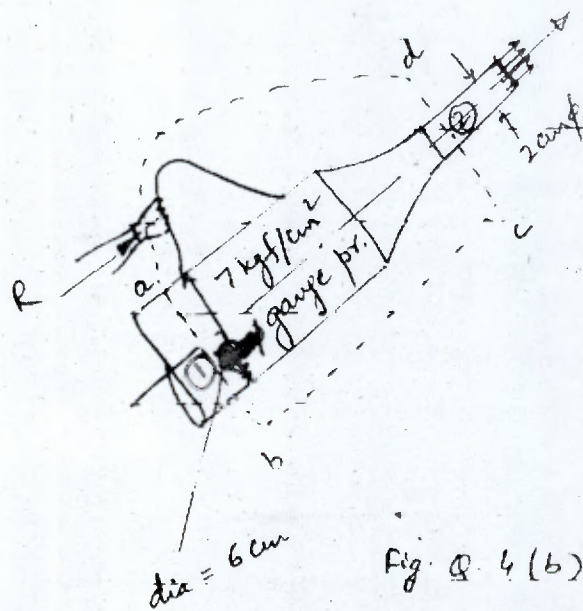 d
②
2 cmϕ
c
7 kgf/cm²
gauge pr.
R
a
①
b
dia = 6 cm
Fig. Q. 4 (b)